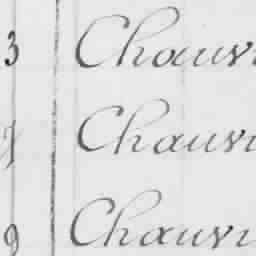 3 Chauvi
7 Chauvi
9 Chauvi